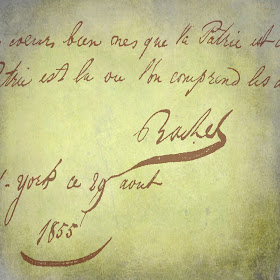 coeurs bien nés que la Patrie et
Patrie est la ou l'on comprend les
Rachel
-York ce 29 aout
1855